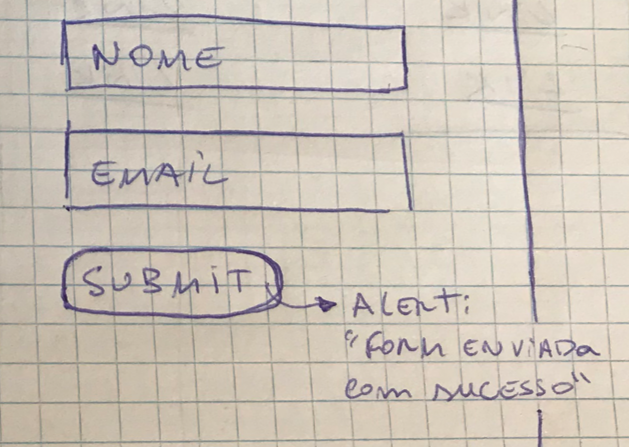 NOME
EMAIL
SUBMIT
ALERT:
"FORM ENVIADA
COM SUCESSO"